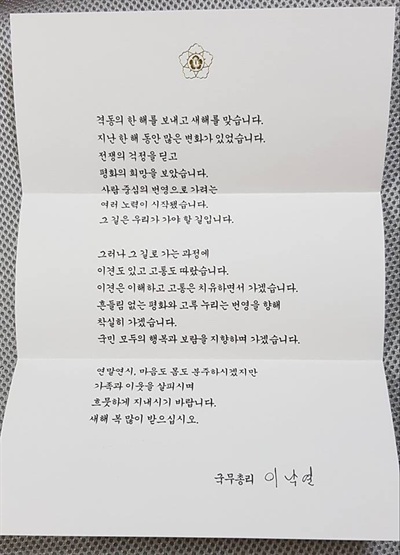 격동의 한 해를 보내고 새해를 맞습니다.
지난 한 해 동안 많은 변화가 있었습니다.
전쟁의 걱정을 딛고
평화의 희망을 보았습니다.
사람 중심의 번영으로 가려는
여러 노력이 시작됐습니다.
그 길은 우리가 가야 할 길입니다.
그러나 그 길로 가는 과정에
이견도 있고 고통도 따랐습니다.
이견은 이해하고 고통은 치유하면서 가겠습니다.
흔들림 없는 평화와 고루 누리는 번영을 향해
착실히 가겠습니다.
국민 모두의 행복과 보람을 지향하며 가겠습니다.
연말연시, 마음도 몸도 분주하시겠지만
가족과 이웃을 살피시며
흐뭇하게 지내시기 바랍니다.
새해 복 많이 받으십시오.
국무총리 이낙연